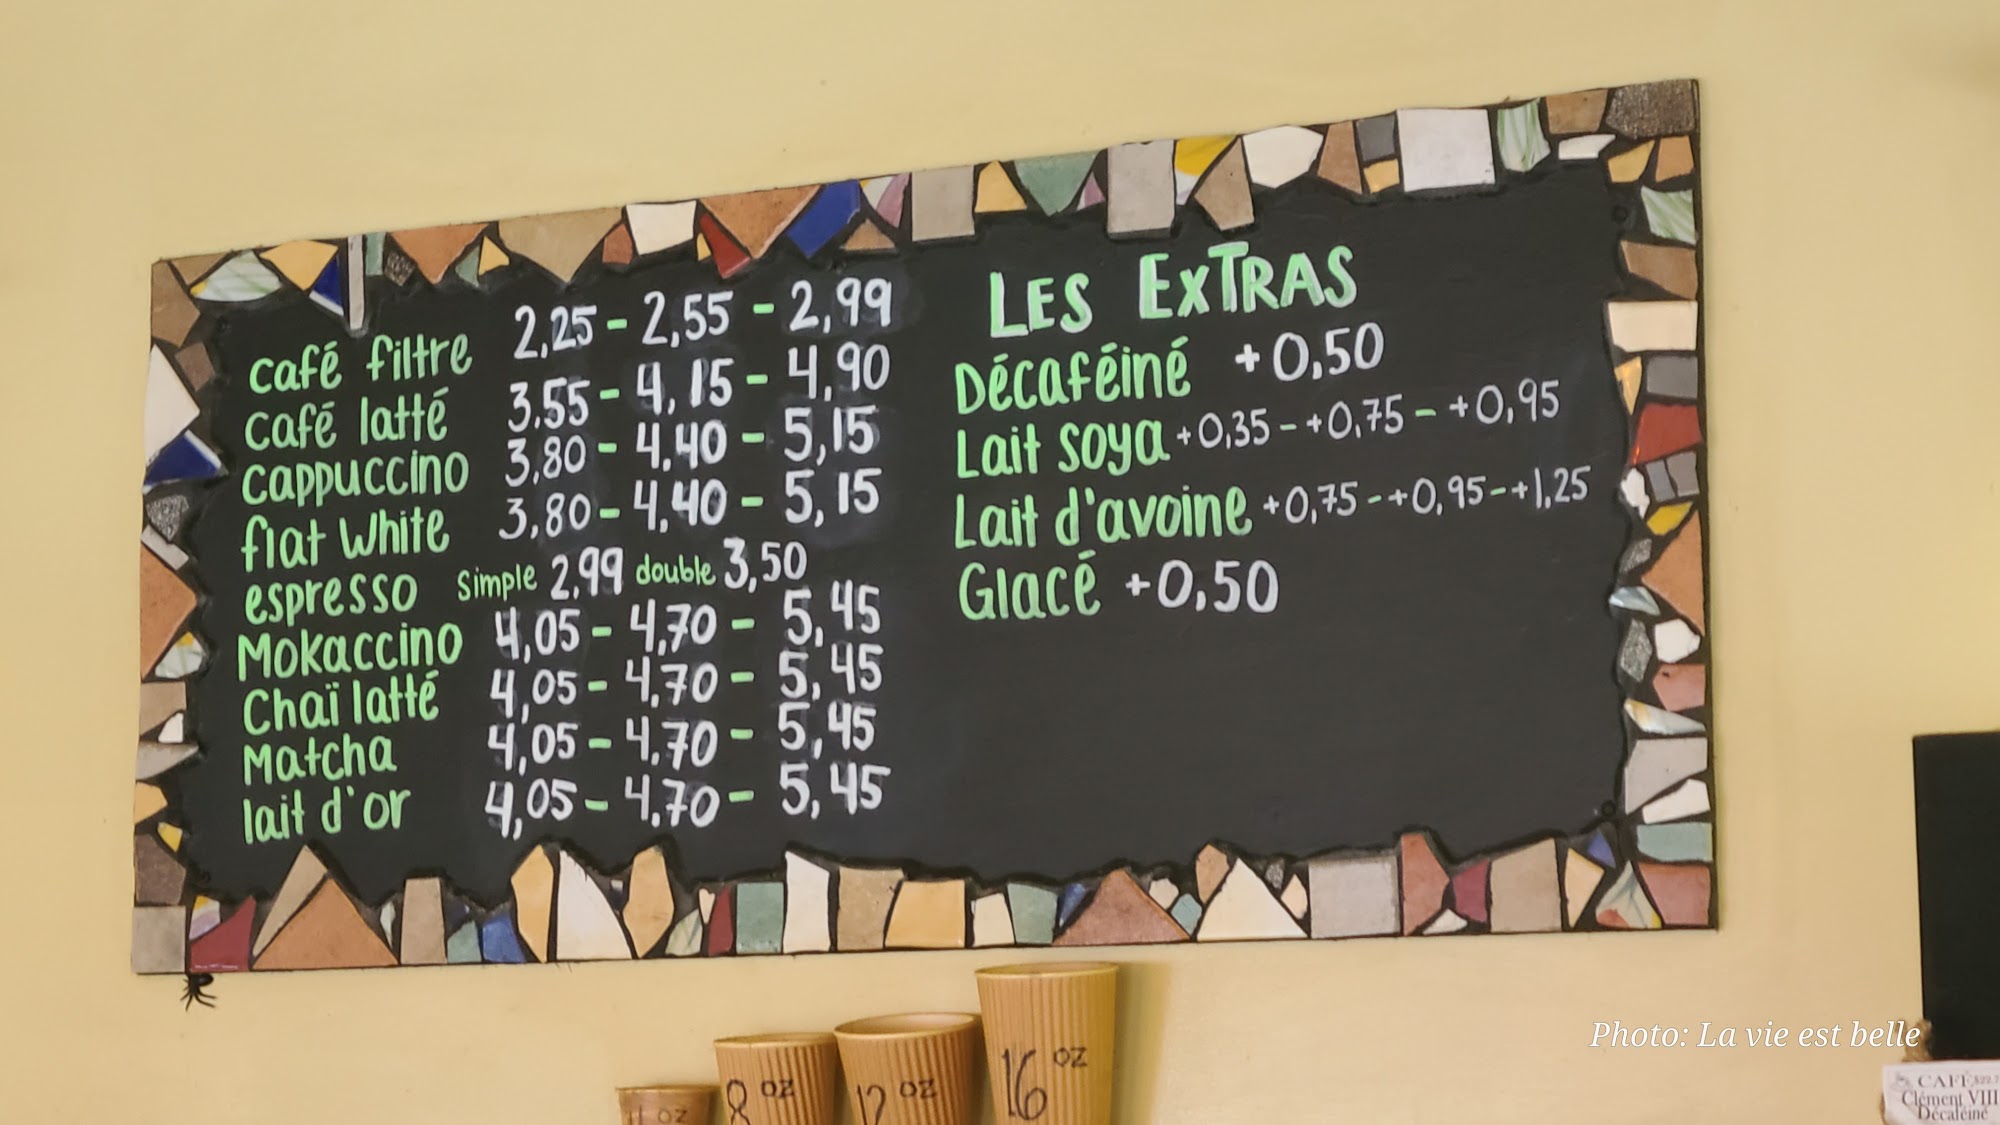 café filtre 2,25 - 2,55 - 2,99
café latté 3.55 - 4,15 - 4,90
cappuccino 3,80 - 4.40 - 5,15
flat white 3,80 - 4,40 - 5,15
espresso simple 2.99 double 3,50
Mokaccino 4,05 - 4,70 - 5,45
Chaï latté 4,05 - 4.70 - 5,45
Matcha 4,05 - 4.70 - 5,45
lait d'or 4,05 - 4.70 - 5,45
LES EXTRAS
Décaféiné +0,50
Lait soya +0,35 - +0,75 - +0,95
Lait d'avoine +0,75 - +0,95 - +1,25
Glacé +0,50
4 OZ
8 OZ
12 OZ
16 OZ
Photo: La vie est belle
CAFÉ
Clément VIII
Décaféiné